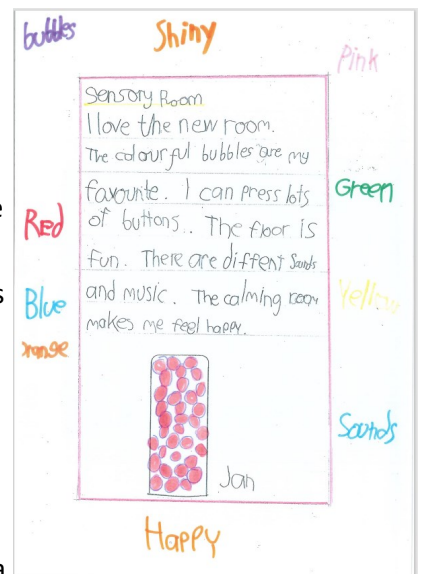 bubbles
Shiny
Pink
Sensory Room
I love the new room.
The colourful bubbles are my
favourite. I can press lots
of buttons.. The floor is
fun. There are diffent Sounds
and music. The calming room
makes me feel happy.
Green
Red
Blue
Yellow
orange
Sounds
Jan
Happy